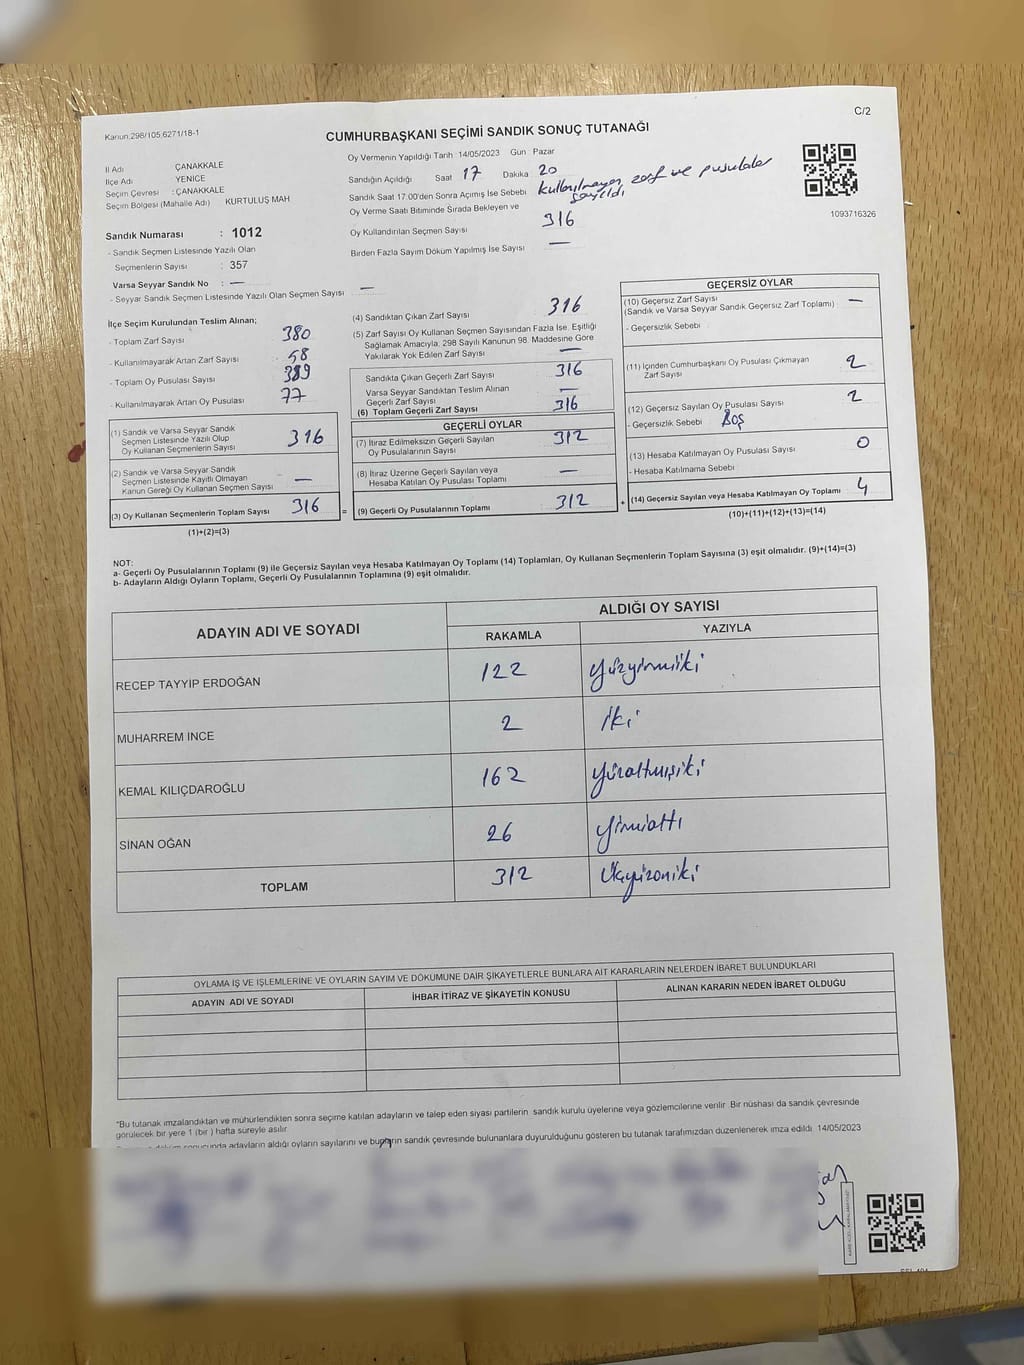 C/2
Kanun:298/105,6271/18-1
CUMHURBAŞKANI SEÇİMİ SANDIK SONUÇ TUTANAĞI
İl Adı ÇANAKKALE
İlçe Adı YENİCE
Seçim Çevresi : ÇANAKKALE
Seçim Bölgesi (Mahalle Adı) KURTULUŞ MAH
Sandık Numarası : 1012
- Sandık Seçmen Listesinde Yazılı Olan
Seçmenlerin Sayısı : 357
Varsa Seyyar Sandık No : —
- Seyyar Sandık Seçmen Listesinde Yazılı Olan Seçmen Sayısı —
Oy Vermenin Yapıldığı Tarih 14/05/2023 Gün Pazar
Sandığın Açıldığı Saat 17 Dakika 20
Sandık Saat 17:00'den Sonra Açımış İse Sebebi kullanılmayan zarf ve pusulalar sayıldı
Oy Verme Saati Bitiminde Sırada Bekleyen ve
Oy Kullandırılan Seçmen Sayısı 316
Birden Fazla Sayım Döküm Yapılmış İse Sayısı —
1093716326
İlçe Seçim Kurulundan Teslim Alınan;
- Toplam Zarf Sayısı : 380
- Kullanılmayarak Artan Zarf Sayısı : 58
- Toplam Oy Pusulası Sayısı : 389
- Kullanılmayarak Artan Oy Pusulası : 77
(1) Sandık ve Varsa Seyyar Sandık
Seçmen Listesinde Yazılı Olup
Oy Kullanan Seçmenlerin Sayısı 316
(2) Sandık ve Varsa Seyyar Sandık
Seçmen Listesinde Kayıtlı Olmayan
Kanun Gereği Oy Kullanan Seçmen Sayısı —
(3) Oy Kullanan Seçmenlerin Toplam Sayısı 316 =
(1)+(2)=(3)
(4) Sandıktan Çıkan Zarf Sayısı 316
(5) Zarf Sayısı Oy Kullanan Seçmen Sayısından Fazla İse, Eşitliği
Sağlamak Amacıyla, 298 Sayılı Kanunun 98. Maddesine Göre
Yakılarak Yok Edilen Zarf Sayısı —
Sandıkta Çıkan Geçerli Zarf Sayısı 316
Varsa Seyyar Sandıktan Teslim Alınan
Geçerli Zarf Sayısı —
(6) Toplam Geçerli Zarf Sayısı 316
GEÇERLİ OYLAR
(7) İtiraz Edilmeksizin Geçerli Sayılan
Oy Pusulalarının Sayısı 312
(8) İtiraz Üzerine Geçerli Sayılan veya
Hesaba Katılan Oy Pusulası Toplamı —
(9) Geçerli Oy Pusulalarının Toplamı 312 +
GEÇERSİZ OYLAR
(10) Geçersiz Zarf Sayısı —
(Sandık ve Varsa Seyyar Sandık Geçersiz Zarf Toplamı)
- Geçersizlik Sebebi
(11) İçinden Cumhurbaşkanı Oy Pusulası Çıkmayan
Zarf Sayısı 2
(12) Geçersiz Sayılan Oy Pusulası Sayısı 2
- Geçersizlik Sebebi Boş
(13) Hesaba Katılmayan Oy Pusulası Sayısı 0
- Hesaba Katılmama Sebebi
(14) Geçersiz Sayılan veya Hesaba Katılmayan Oy Toplamı 4
(10)+(11)+(12)+(13)=(14)
NOT:
a- Geçerli Oy Pusulalarının Toplamı (9) ile Geçersiz Sayılan veya Hesaba Katılmayan Oy Toplamı (14) Toplamları, Oy Kullanan Seçmenlerin Toplam Sayısına (3) eşit olmalıdır. (9)+(14)=(3)
b- Adayların Aldığı Oyların Toplamı, Geçerli Oy Pusulalarının Toplamına (9) eşit olmalıdır.
ADAYIN ADI VE SOYADI ALDIĞI OY SAYISI
RAKAMLA YAZIYLA
RECEP TAYYİP ERDOĞAN 122 Yüzyirmiiki
MUHARREM İNCE 2 iki
KEMAL KILIÇDAROĞLU 162 Yüzaltmışiki
SİNAN OĞAN 26 Yirmialtı
TOPLAM 312 Üçyüzoniki
OYLAMA İŞ VE İŞLEMLERİNE VE OYLARIN SAYIM VE DÖKÜMÜNE DAİR ŞİKAYETLERLE BUNLARA AİT KARARLARIN NELERDEN İBARET BULUNDUKLARI
ADAYIN ADI VE SOYADI İHBAR İTİRAZ VE ŞİKAYETİN KONUSU ALINAN KARARIN NEDEN İBARET OLDUĞU
*Bu tutanak imzalandıktan ve mühürlendikten sonra seçime katılan adayların ve talep eden siyasi partilerin sandık kurulu üyelerine veya gözlemcilerine verilir. Bir nüshası da sandık çevresinde
görülecek bir yere 1 (bir) hafta süreyle asılır.
sonucunda adayların aldığı oyların sayılarını ve bunların sandık çevresinde bulunanlara duyurulduğunu gösteren bu tutanak tarafımızdan düzenlenerek imza edildi. 14/05/2023